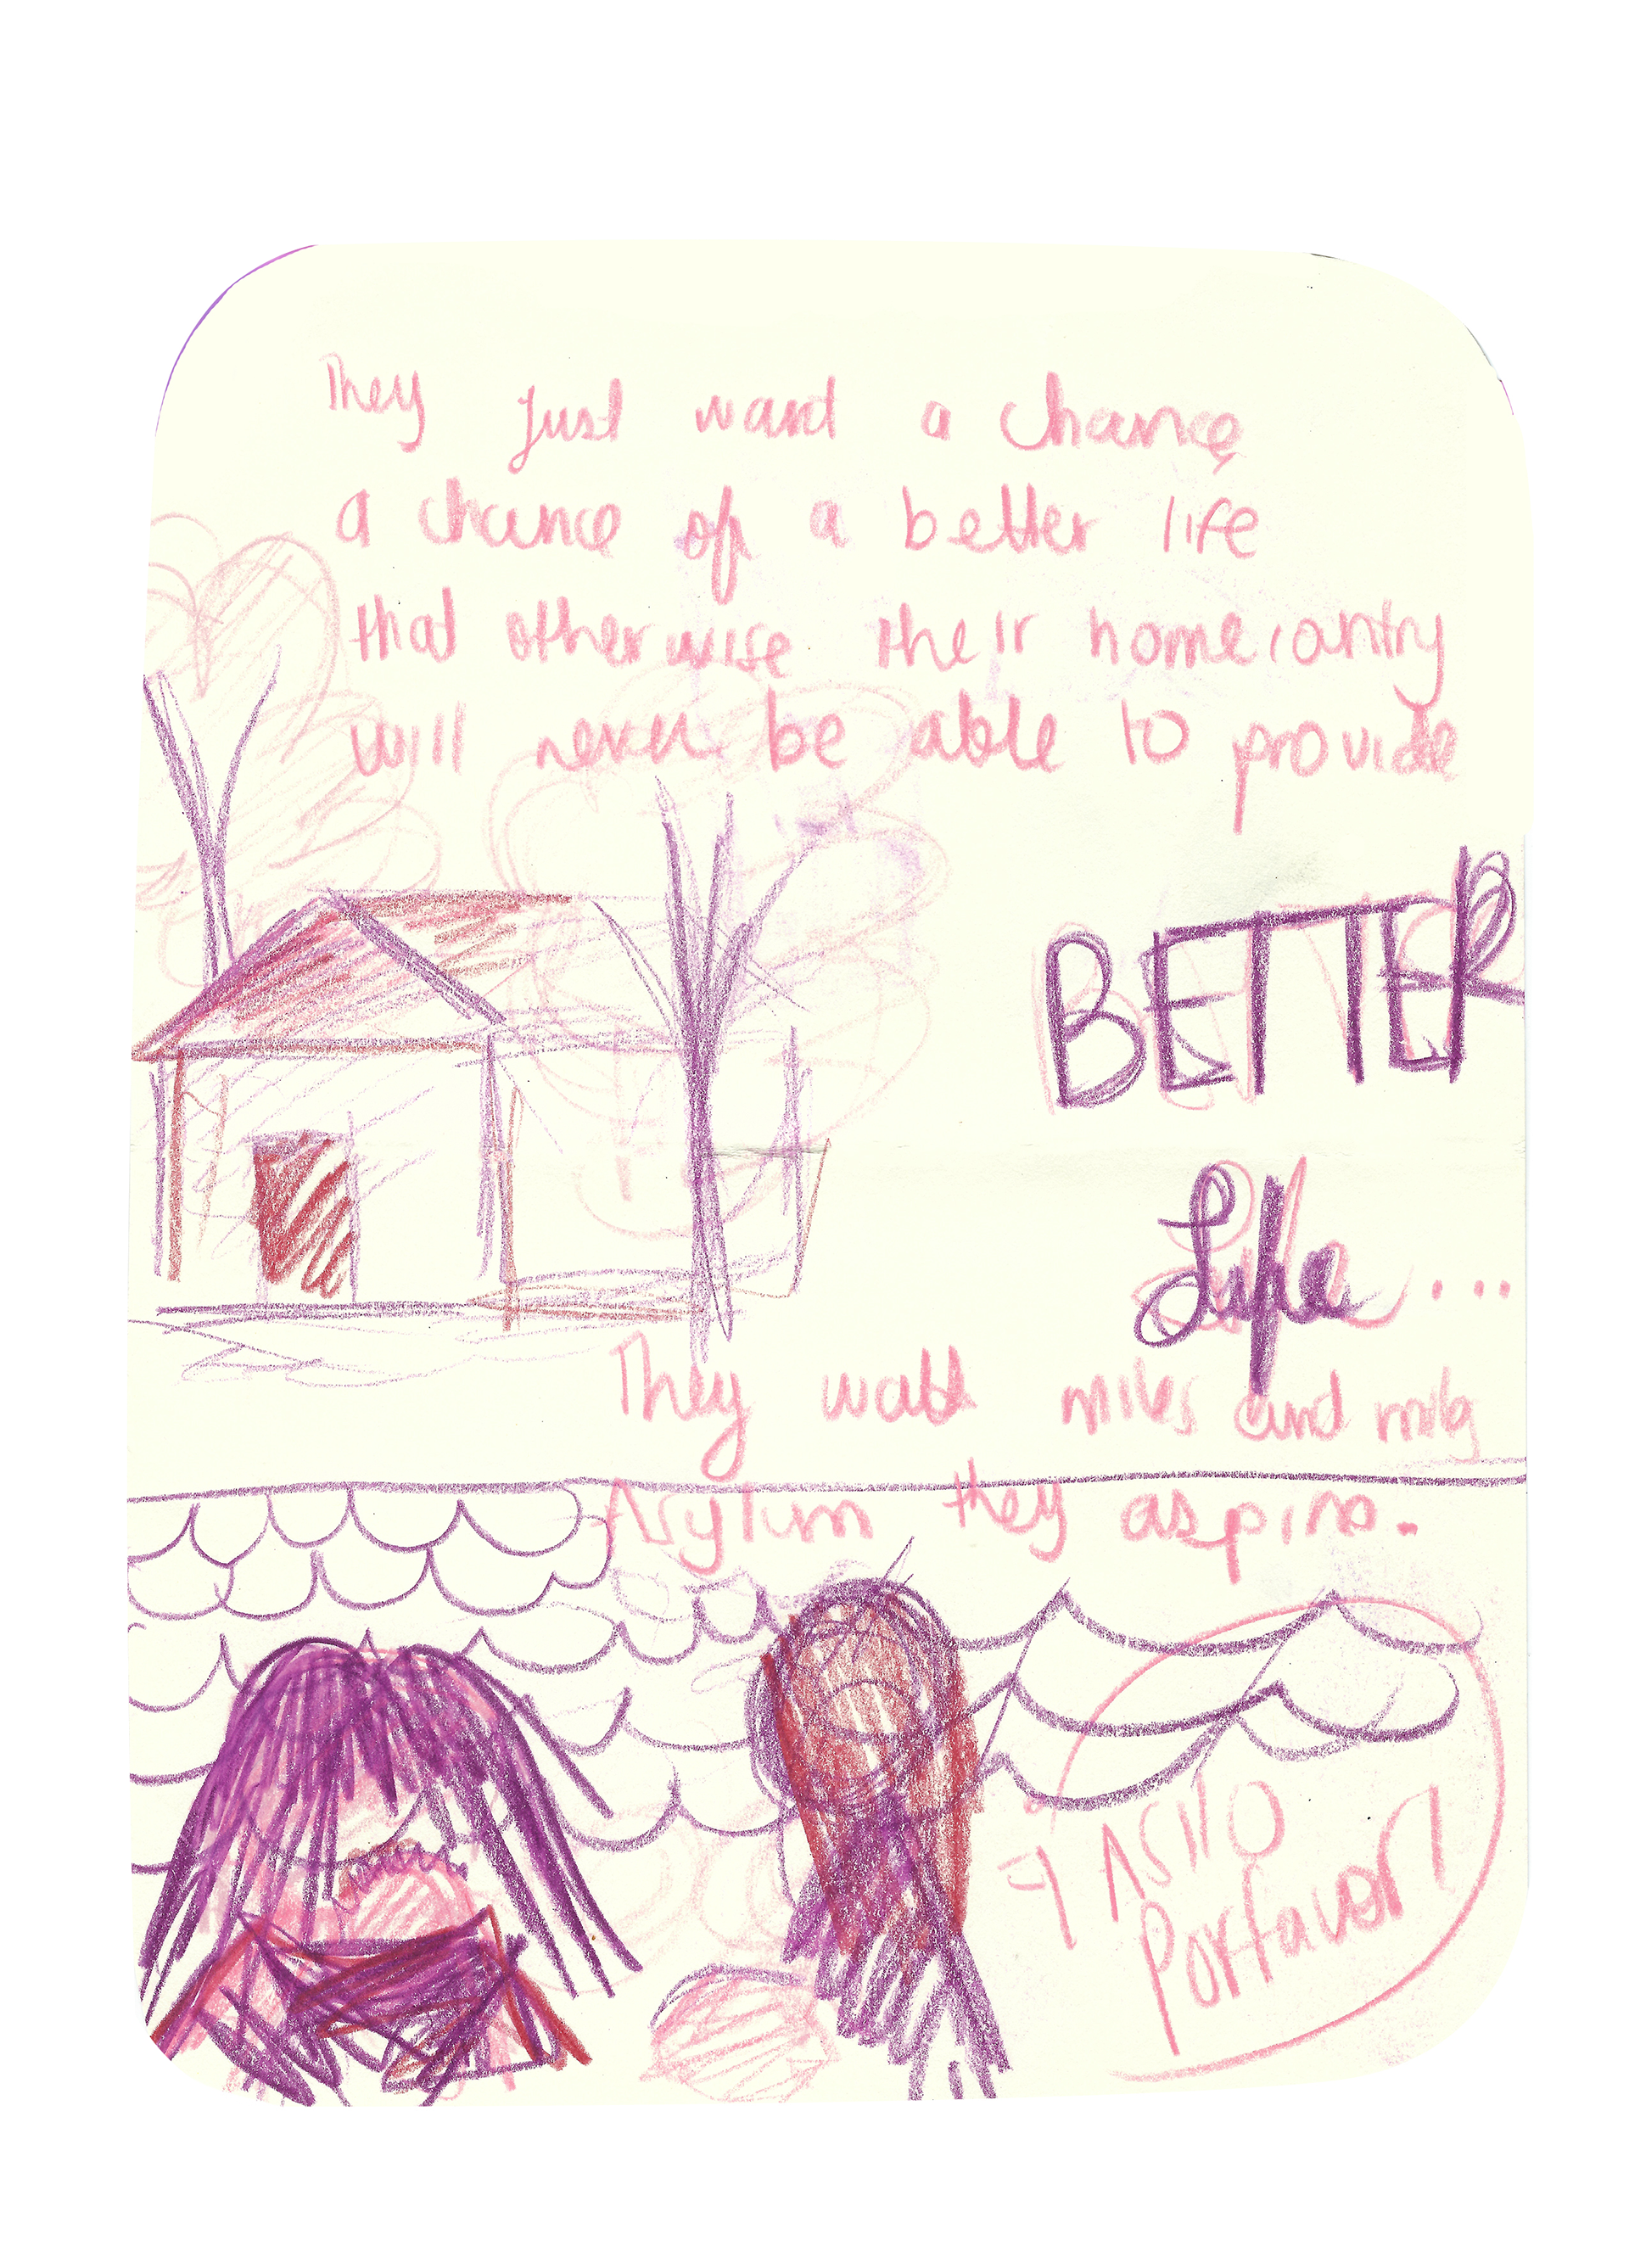 They just want a chance
a chance of a better life
that otherwise their homecountry
will never be able to provide
BETTER
Life...
They walk miles and miles
Asylum they aspire.
Asilo
Porfavor!